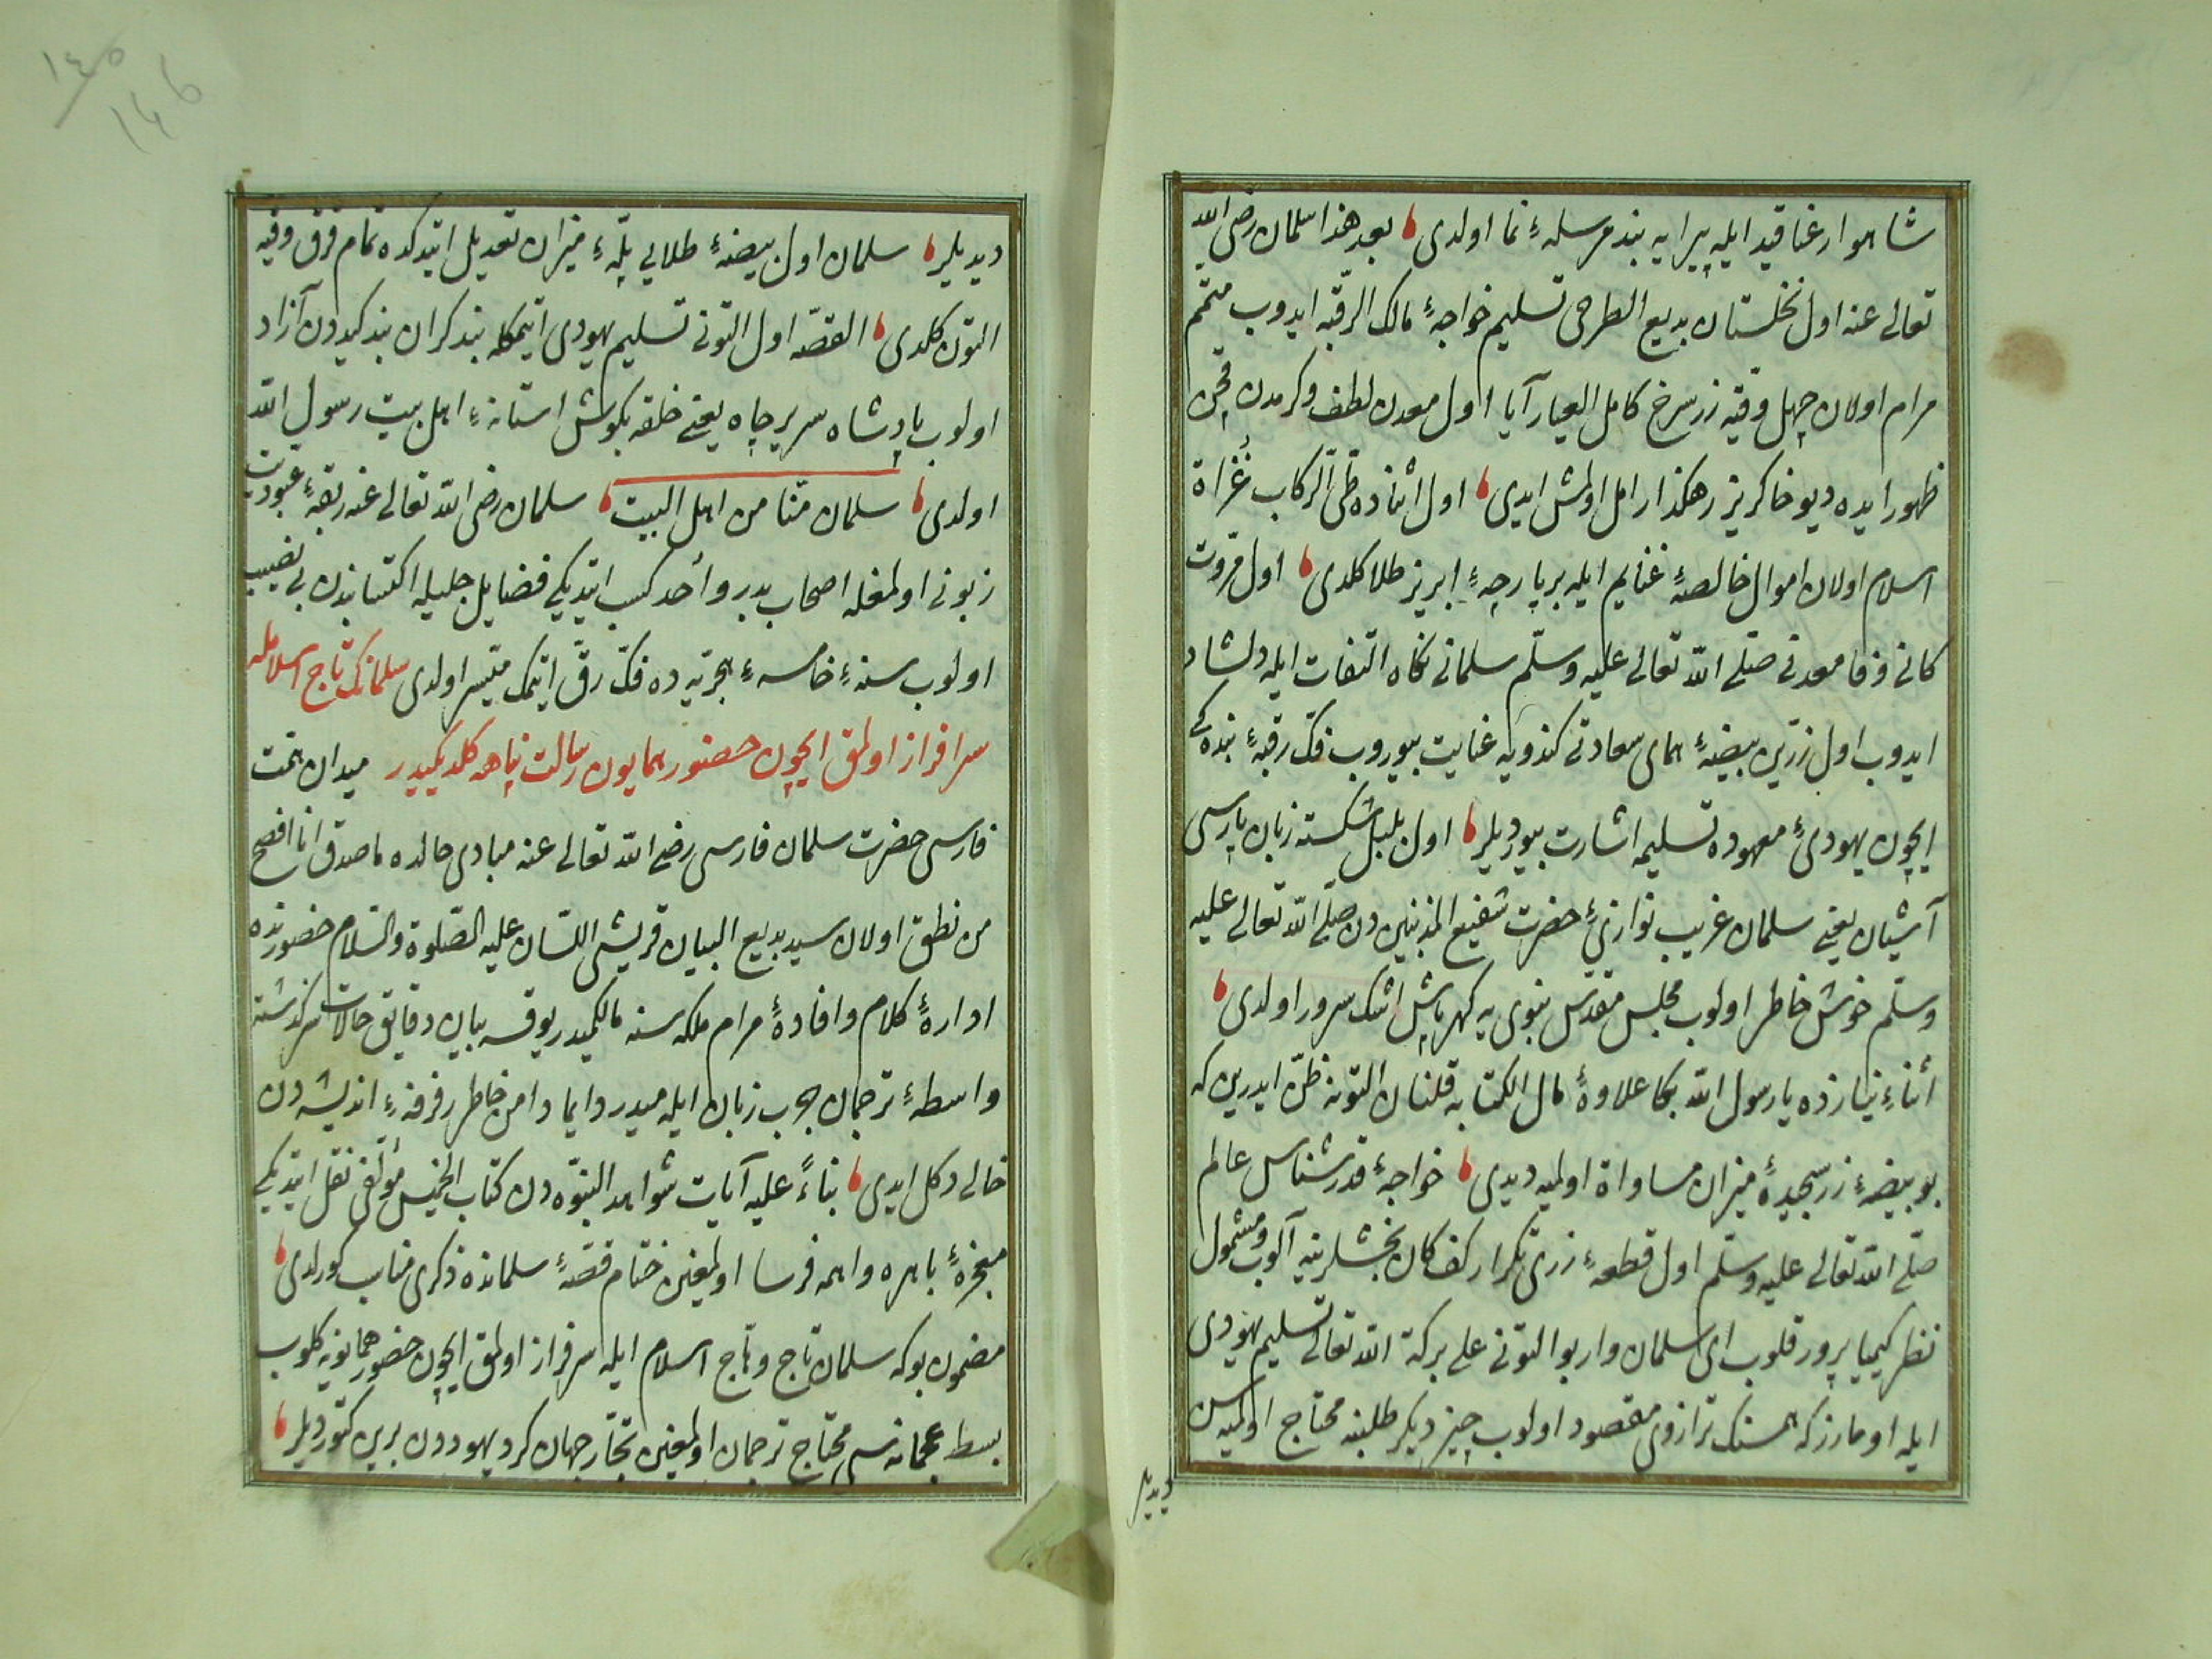 شاهوار غنا قيد ايله پيرايه بند مرسلهٔ نما اولدى بعد هذا سلمان رضى الله
تعالى عنه اول نخلستان بديع الطرحى تسليم خواجهٔ مالك الرقبه ايدوب متمم
مرام اولان چهل وقيه زر سرخ كامل العيار آيا اول معدن لطف و كرمدن قچن
ظهور ايده ديو خاكريز رهكذار امل اولمش ايدى اول اثناده ظفر الركاب غزاة
اسلام اولان اموال خالصهٔ غنايم ايله بر پارچهٔ ابريز طلا كلدى اول مروت
كانى وفا معدنى صلى الله تعالى عليه وسلم سلمانى نكاه التفات ايله دلشاد
ايدوب اول زرين بيضهٔ هماى سعادتى كندويه عنايت بيوروب فك رقبهٔ بندكى
ايچون يهودئ معهوده تسليمه اشارت بيورديلر اول بلبل شكسته زبان پارسى
آشيان يعنى سلمان غريب نوازئ حضرت شفيع المذنبين دن صلى الله تعالى عليه
وسلم خوش خاطر اولوب مجلس مقدس نبوى يه كهرپاش اشك سرور اولدى
اثناء نيازده يا رسول الله بكا علاوهٔ مال الكتابه قلنان التونه ظن ايدرين كه
بو بيضهٔ زر سنجيدهٔ ميزان مساواة اولميه ديدى خواجهٔ قدرشناس عالم
صلى الله تعالى عليه وسلم اول قطعهٔ زرى تكرار كف كان بخشلرينه آلوب مشمول
نظر كيميا پرور قلوب اى سلمان وار بو التونى على بركة الله تعالى تسليم يهودى
ايله اومارز كه همسنك ترازوى مقصود اولوب چيز ديكر طلبنه محتاج اولميه سن
ديديلر
١٤٥
١٤٦
ديديلر سلمان اول بيضهٔ طلايى پلهٔ ميزان تعديل ايتدكده تمام قرق وقيه
التون كلدى القصه اول التونى تسليم يهودى ايتمكله بند كران بندكيدن آزاد
اولوب پادشاه سرير جاه يعنى حلقه بكوش استانهٔ اهل بيت رسول الله
اولدى سلمان منا من اهل البيت سلمان رضى الله تعالى عنه ربقهٔ عبوديت
زبونى اولمغله اصحاب بدر و أحد كسب ايتديكى فضايل جليله اكتسابندن بى نصيب
اولوب سنهٔ خامسهٔ هجريه ده فك رق ايتمك ميسر اولدى سلمانك تاج اسلامله
سرافراز اولمق ايچون حضور همايون رسالت پناهه كلديكيدر ميدان همت
فارسى حضرت سلمان فارسى رضى الله تعالى عنه مبادى حالده ما صدق انا افصح
من نطق اولان سيد بديع البيان قريشى اللسان عليه الصلوة والسلام حضورنده
ادارهٔ كلام و افادهٔ مرام ملكه سنه مالكميدر يوقسه بيان دقايق حالات سركذشته
واسطهٔ ترجمان چرب زبان ايله ميدر دايما دامن خاطر فرفرهٔ انديشه دن
خالى دكل ايدى بناءً عليه آيات شواهد النبوه دن كتاب الخميس مؤلفى نقل ايتديكى
معجزهٔ باهره واهمه فرسا اولمغين ختام قصهٔ سلمانده ذكرى مناسب كورلدى
مضمون بو كه سلمان تاج وهاج اسلام ايله سرافراز اولمق ايچون حضور همايونه كلوب
بسط عجمانه سى محتاج ترجمان اولمغين تجار جهان كرد يهوددن برين كتورديلر